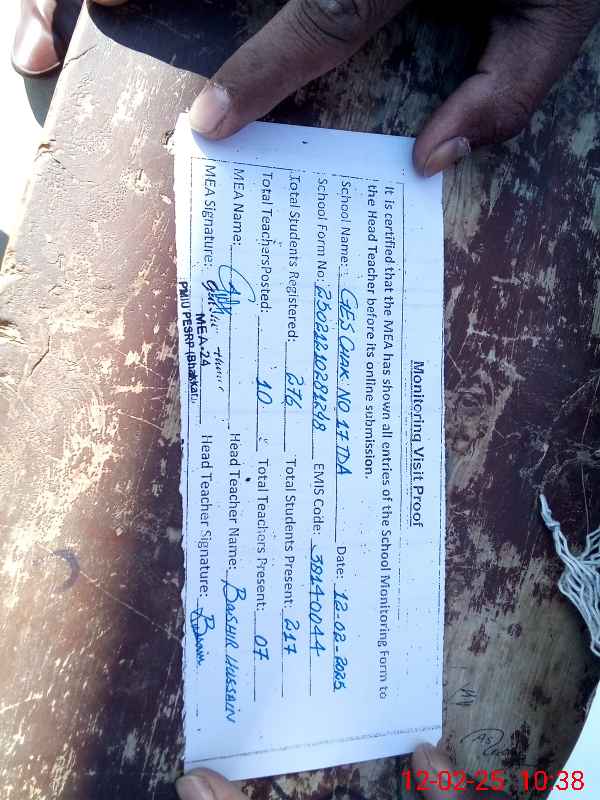 Monitoring Visit Proof
It is certified that the MEA has shown all entries of the School Monitoring Form to
the Head Teacher before its online submission.
School Name: GES CHAK NO 17 TDA Date: 12-02-2025
School Form No: 25021210281248 EMIS Code: 30140044
Total Students Registered: 276 Total Students Present: 217
Total TeachersPosted: 10 Total Teachers Present: 07
MEA Name: Head Teacher Name: BASHIR HUSSAIN
MEA Signature: Head Teacher Signature:
MEA-24
PMIU PESRP (Bhakkar)
12-02-25 10:38